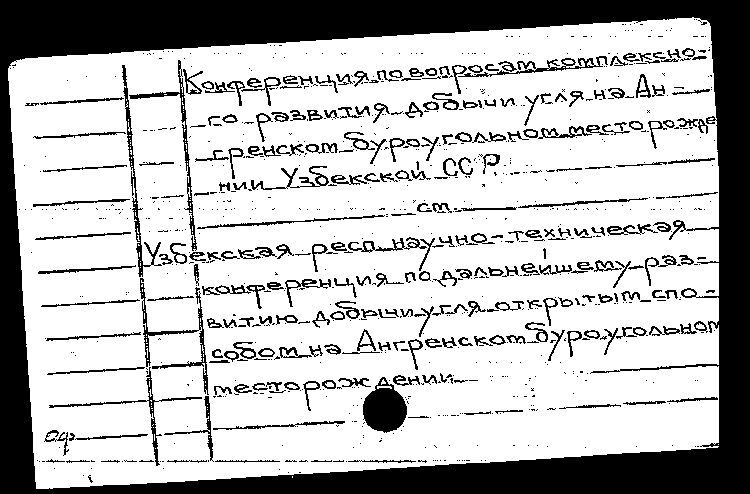 Конференция по вопросам комплексно-
го развития добычи угля на Ан-
гренском буроугольном месторожде
нии Узбекской ССР.
см.
Узбекская респ. научно-техническая
конференция по дальнейшему раз-
витию добычи угля открытым спо-
собом на Ангренском буроугольном
месторождении